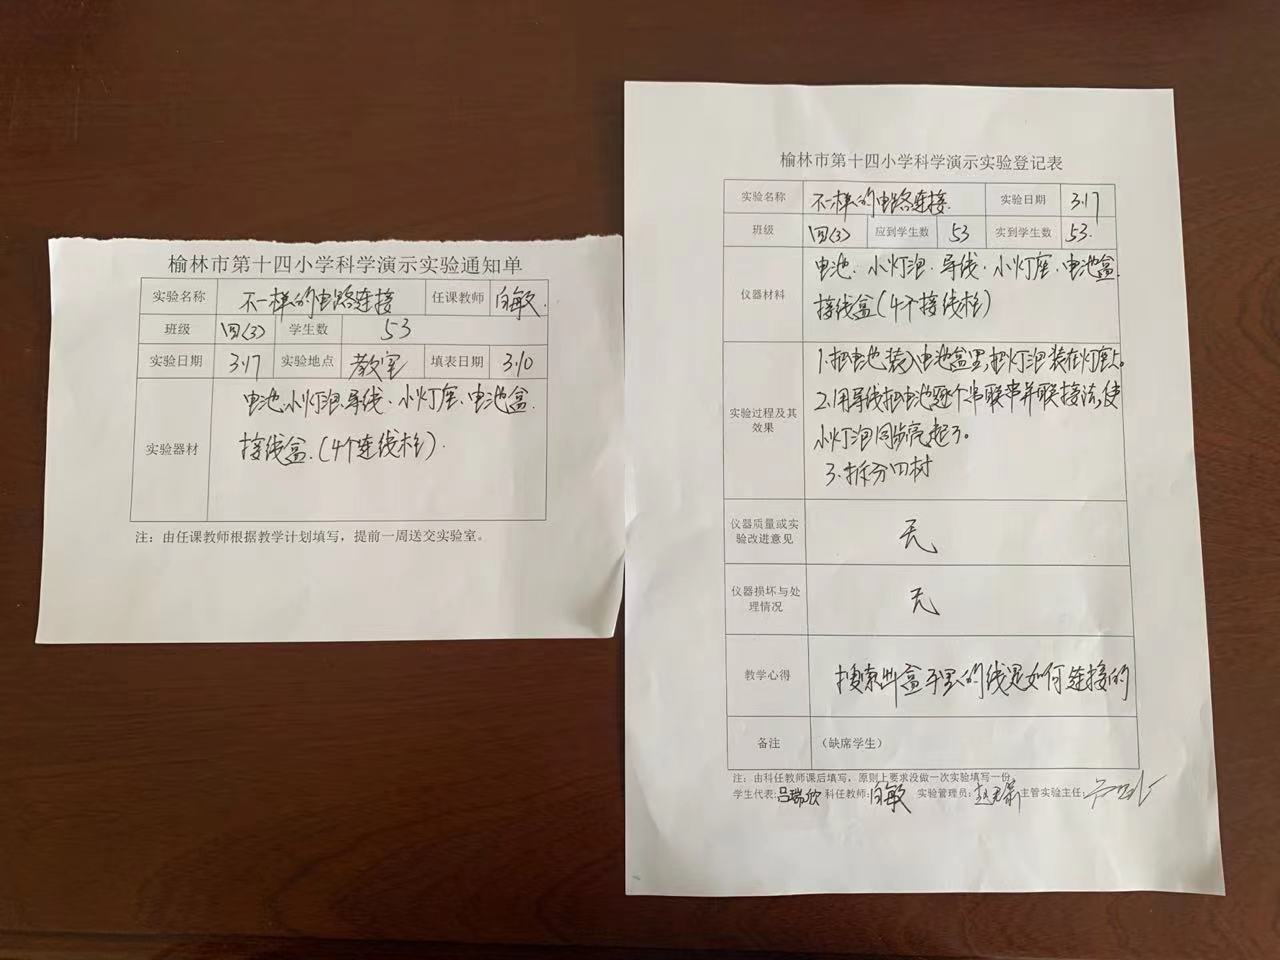 榆林市第十四小学科学演示实验通知单
实验名称 不一样的电路连接 任课教师 白敏.
班级 四(3) 学生数 53
实验日期 3.17 实验地点 教室 填表日期 3.10
实验器材
电池.小灯泡.导线.小灯座.电池盒.
接线盒.(4个连线柱).
注：由任课教师根据教学计划填写，提前一周送交实验室。
榆林市第十四小学科学演示实验登记表
实验名称 不一样的电路连接. 实验日期 3.17
班级 四(3) 应到学生数 53 实到学生数 53.
仪器材料
电池.小灯泡.导线.小灯座.电池盒.
接线盒(4个接线柱)
实验过程及其
效果
1.把电池装入电池盒里,把灯泡装在灯座上。
2.用导线把电池逐个串联串并联接法,使
小灯泡同步亮起了。
3.拆分四树
仪器质量或实
验改进意见
无
仪器损坏与处
理情况
无
教学心得 搜索出盒子里的线是如何连接的
备注 （缺席学生）
注：由科任教师课后填写，原则上要求没做一次实验填写一份
学生代表:吕瑞欣 科任教师:白敏 实验管理员: 主管实验主任: